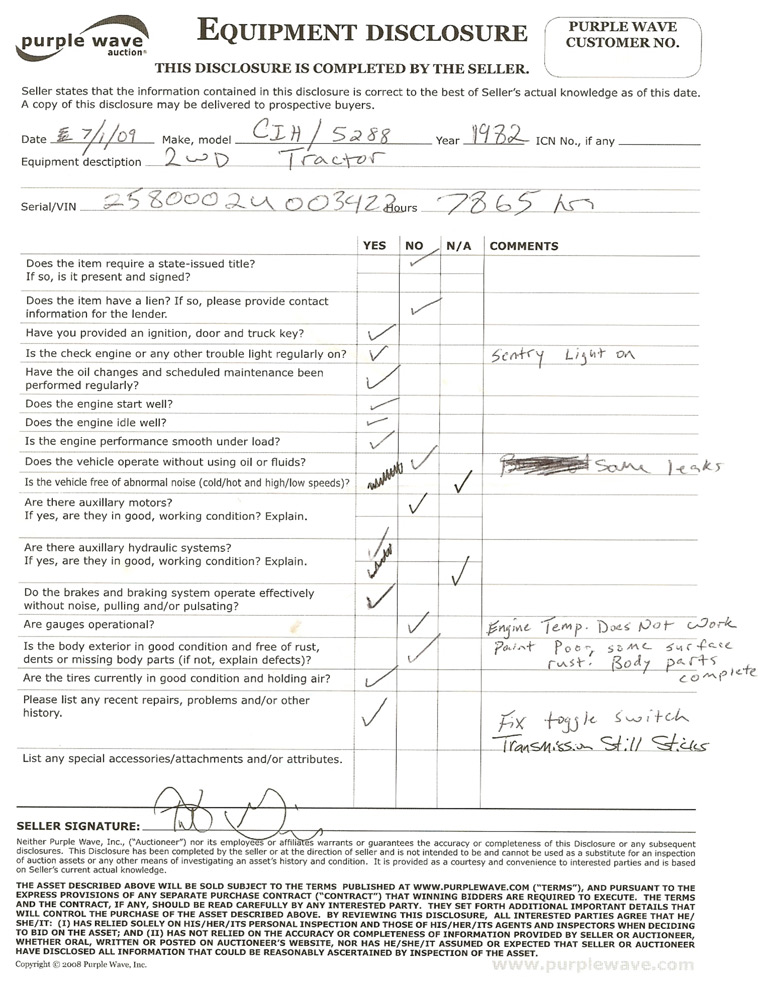 purple wave
auction®
EQUIPMENT DISCLOSURE
PURPLE WAVE
CUSTOMER NO.
THIS DISCLOSURE IS COMPLETED BY THE SELLER.
Seller states that the information contained in this disclosure is correct to the best of Seller's actual knowledge as of this date.
A copy of this disclosure may be delivered to prospective buyers.
Date 7/1/09 Make, model CIH/5288 Year 1982 ICN No., if any
Equipment desctiption 2WD Tractor
Serial/VIN 2580002U003423 Hours 7865 hrs
YES NO N/A COMMENTS
Does the item require a state-issued title? ✓
If so, is it present and signed?
Does the item have a lien? If so, please provide contact
information for the lender. ✓
Have you provided an ignition, door and truck key? ✓
Is the check engine or any other trouble light regularly on? ✓ Sentry Light on
Have the oil changes and scheduled maintenance been
performed regularly? ✓
Does the engine start well? ✓
Does the engine idle well? ✓
Is the engine performance smooth under load? ✓
Does the vehicle operate without using oil or fluids? ✓ Some leaks
Is the vehicle free of abnormal noise (cold/hot and high/low speeds)? ✓
Are there auxillary motors? ✓
If yes, are they in good, working condition? Explain.
Are there auxillary hydraulic systems? ✓
If yes, are they in good, working condition? Explain. ✓
Do the brakes and braking system operate effectively
without noise, pulling and/or pulsating? ✓
Are gauges operational? ✓ Engine Temp. Does Not Work
Is the body exterior in good condition and free of rust, Paint Poor, some surface
dents or missing body parts (if not, explain defects)? ✓ rust. Body parts
complete
Are the tires currently in good condition and holding air? ✓
Please list any recent repairs, problems and/or other
history. ✓ Fix toggle switch
Transmission Still Sticks
List any special accessories/attachments and/or attributes.
SELLER SIGNATURE:
Neither Purple Wave, Inc., ("Auctioneer") nor its employees or affiliates warrants or guarantees the accuracy or completeness of this Disclosure or any subsequent
disclosures. This Disclosure has been completed by the seller or at the direction of seller and is not intended to be and cannot be used as a substitute for an inspection
of auction assets or any other means of investigating an asset's history and condition. It is provided as a courtesy and convenience to interested parties and is based
on Seller's current actual knowledge.
THE ASSET DESCRIBED ABOVE WILL BE SOLD SUBJECT TO THE TERMS PUBLISHED AT WWW.PURPLEWAVE.COM ("TERMS"), AND PURSUANT TO THE
EXPRESS PROVISIONS OF ANY SEPARATE PURCHASE CONTRACT ("CONTRACT") THAT WINNING BIDDERS ARE REQUIRED TO EXECUTE. THE TERMS
AND THE CONTRACT, IF ANY, SHOULD BE READ CAREFULLY BY ANY INTERESTED PARTY. THEY SET FORTH ADDITIONAL IMPORTANT DETAILS THAT
WILL CONTROL THE PURCHASE OF THE ASSET DESCRIBED ABOVE. BY REVIEWING THIS DISCLOSURE, ALL INTERESTED PARTIES AGREE THAT HE/
SHE/IT: (I) HAS RELIED SOLELY ON HIS/HER/ITS PERSONAL INSPECTION AND THOSE OF HIS/HER/ITS AGENTS AND INSPECTORS WHEN DECIDING
TO BID ON THE ASSET; AND (II) HAS NOT RELIED ON THE ACCURACY OR COMPLETENESS OF INFORMATION PROVIDED BY SELLER OR AUCTIONEER,
WHETHER ORAL, WRITTEN OR POSTED ON AUCTIONEER'S WEBSITE, NOR HAS HE/SHE/IT ASSUMED OR EXPECTED THAT SELLER OR AUCTIONEER
HAVE DISCLOSED ALL INFORMATION THAT COULD BE REASONABLY ASCERTAINED BY INSPECTION OF THE ASSET.
Copyright © 2008 Purple Wave, Inc.
www.purplewave.com